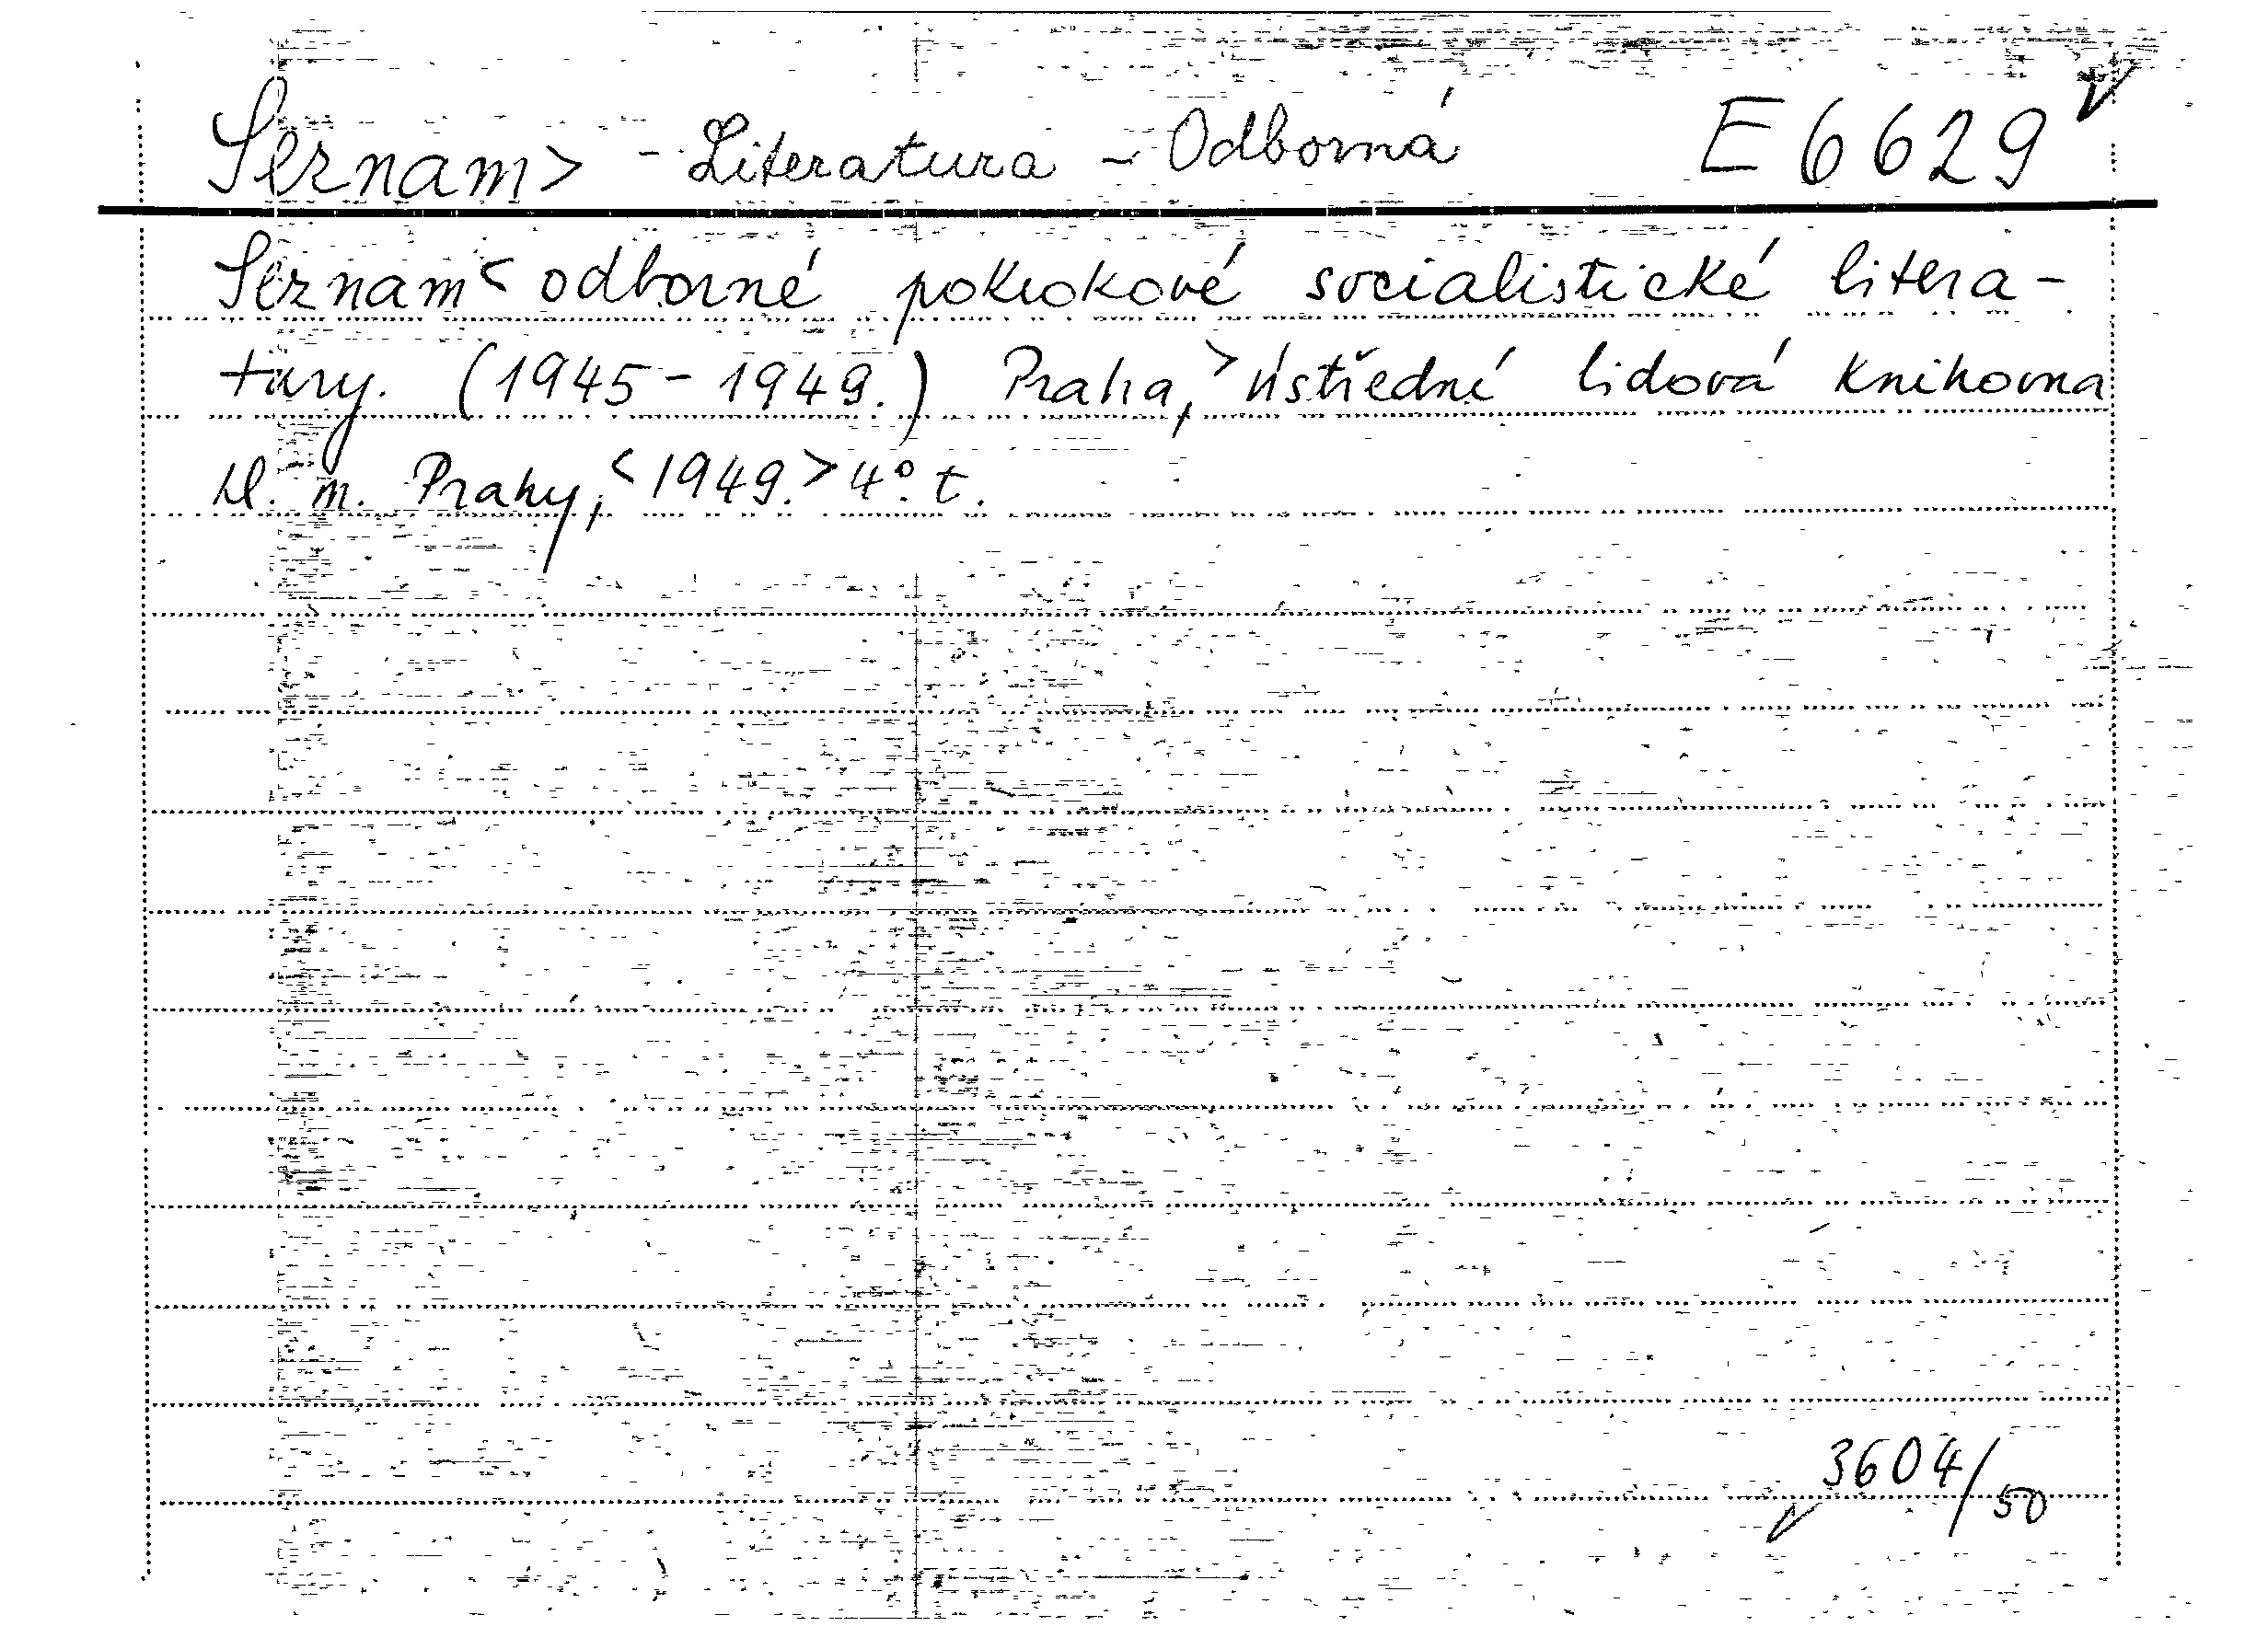 Seznam> - Literatura - Odborná E 6629
Seznam< odborné pokrokové socialistické litera-
tury. (1945-1949.) Praha,> Ústřední lidová knihovna
hl. m. Prahy,<1949.> 4°. t.
3604/50